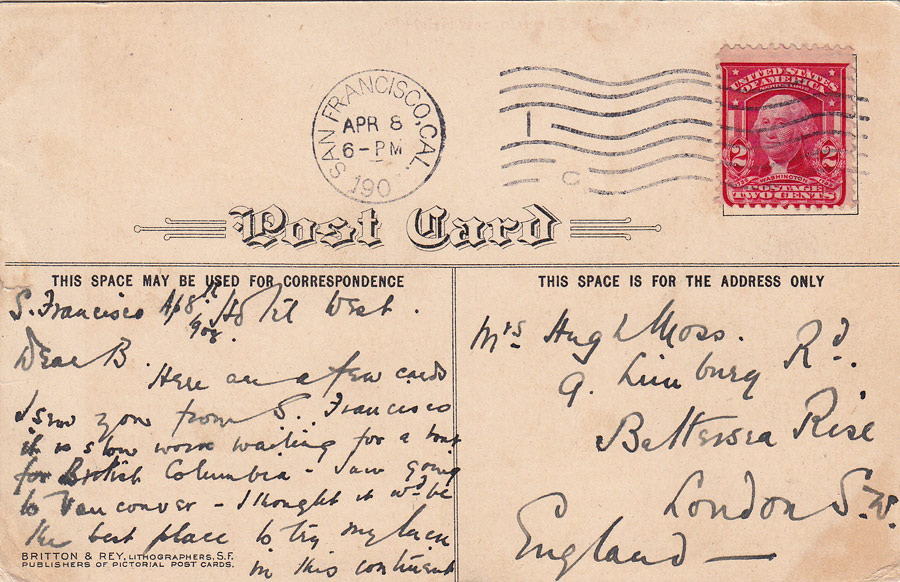 SAN FRANCISCO, CAL.
APR 8
6-PM
190
UNITED STATES
OF AMERICA
2 2
WASHINGTON
POSTAGE
TWO CENTS
Post Card
THIS SPACE MAY BE USED FOR CORRESPONDENCE
S. Francisco Ap 8th Hotel West.
Dear B.
Here are a few cards
I send you from S. Francisco
it is slow work waiting for a boat
for British Columbia - I am going
to Vancouver - I thought it wd be
the best place to try my luck
in this continent
BRITTON & REY, LITHOGRAPHERS, S.F.
PUBLISHERS OF PICTORIAL POST CARDS.
THIS SPACE IS FOR THE ADDRESS ONLY
Mrs Hugh Moss.
9. Limburg Rd.
Battersea Rise
London S.W.
England